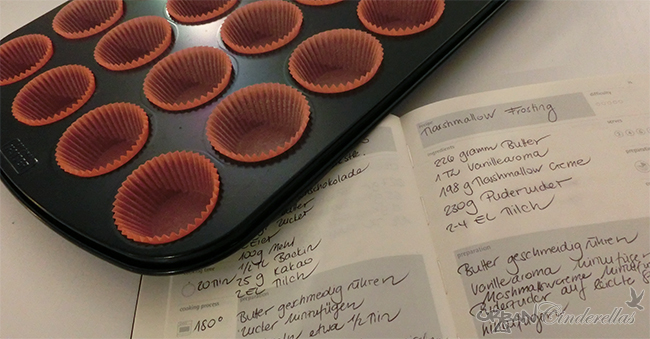 Marshmallow Frosting
ingredients
226 gramm Butter
1 TL Vanillearoma
198 g Marshmallow Creme
230g Puderzucker
2-4 EL Milch
preparation
Butter geschmeidig rühren
Vanillearoma hinzufügen
Marshmallowcreme
Puderzucker auf
hinzufügen
Schokolade
Zucker
2 Eier
100g Mehl
1/2 TL Backin
25 g Kakao
2 EL Milch
20 Min
cooking process
180°
preparation
Butter geschmeidig rühren
Zucker hinzufügen
etwa 1/2 Min
URBAN Cinderellas